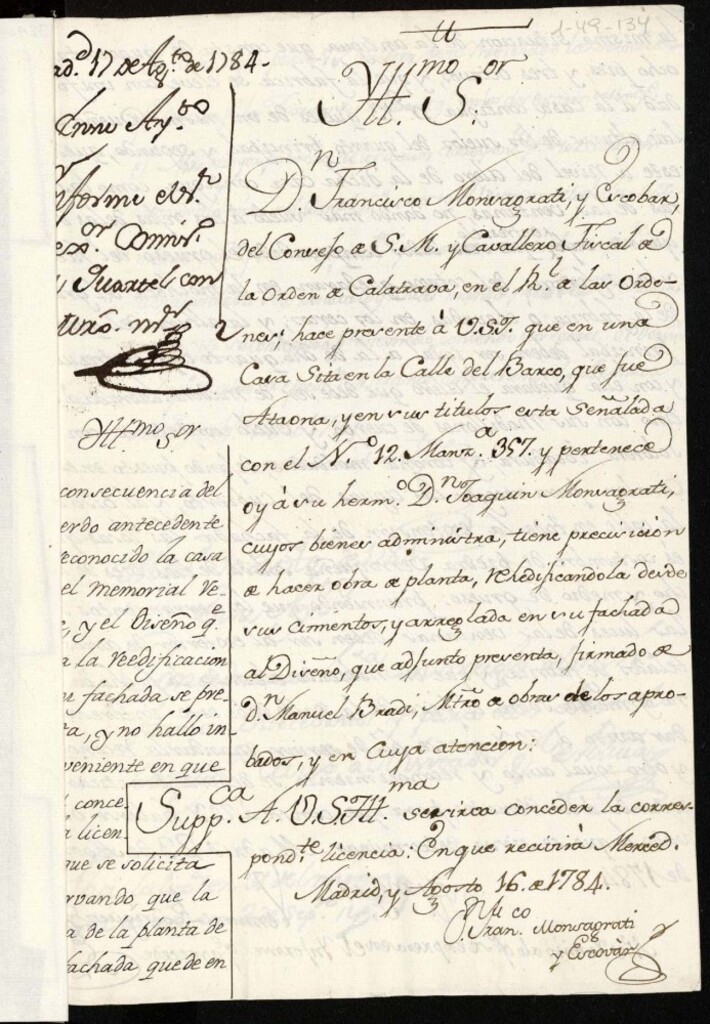 1-49-134
tt
Yllmo. Sor.
Dn. Francisco Monsagrati, y Escobar,
del Consejo de S. M. y Cavallero Fiscal de
la Orden de Calatrava, en el Rl. de las Orde-
nes; hace presente à V.S.Y. que en una
Casa Sita en la Calle del Barco, que fue
Ataona, y en sus titulos esta señalada
con el No. 12. Manza. 357. y pertenece
oy à su hermo. Dn. Joaquin Monsagrati,
cuyos bienes administra, tiene precisicion
de hacer obra de planta, rehedificandola desde
sus cimentos, y arreglada en su fachada
al Diseño, que adjunto presenta, firmado de
dn. Manuel Bradi, Mtro de obras de los apro-
bados, y en Cuya atencion:
Suppca. A. V.S.Yllma. se sirva conceder la corres-
pondte. licencia: En que recivirà Merced.
Madrid, y Agosto 16. de 1784.
Franco. Monsagrati
y Escovàr
add. 17 de Agto. de 1784.
Ynforme el Sr.
Comiso.
Quartel con
Mro. mor
Yllmo Sor
consecuencia del
erdo antecedente
econocido la casa
el memorial re-
e, y el Diseño qe
a la reedificacion
u fachada se pre-
ta, y no hallo in-
veniente en que
conce-
a licen
que se solicita
rvando, que la
a de la planta de
fachada quede en